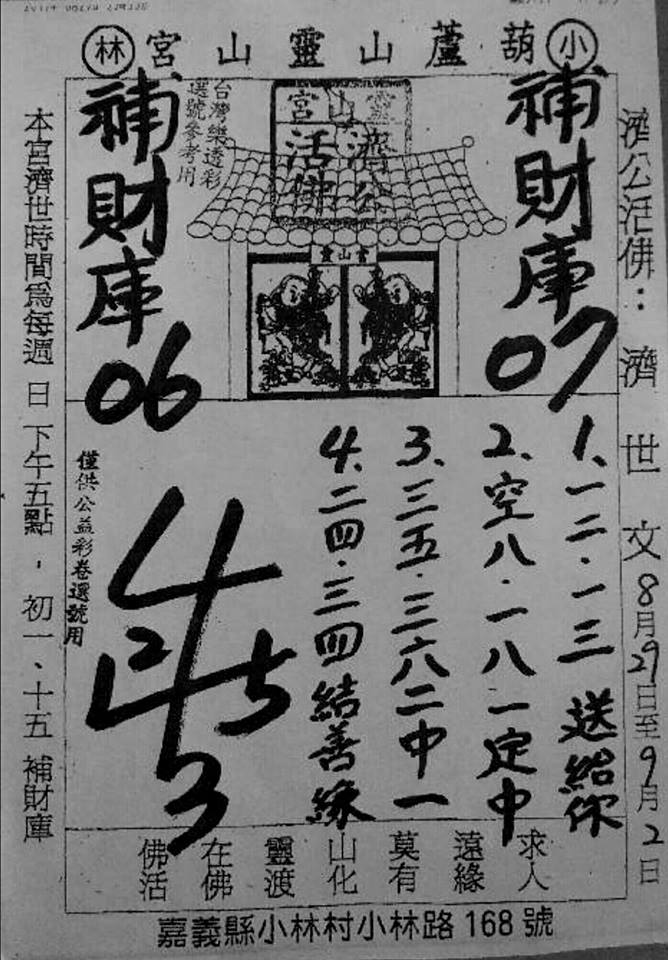 小 葫蘆山靈山宮 林
濟公活佛：濟世文 8月29日至9月2日
補財庫
07
靈山宮
濟公
活佛
台灣樂透彩
選號參考用
補財庫
06
靈山宮
1、一二·一三送給你
2、空八·一八一定中
3、三五·三六二中一
4、二四·三四結善緣
4
2 5
3
僅供公益彩卷選號用
本宮濟世時間為每週日下午五點，初一、十五補財庫
佛在靈山莫遠求
活佛渡化有緣人
嘉義縣小林村小林路168號